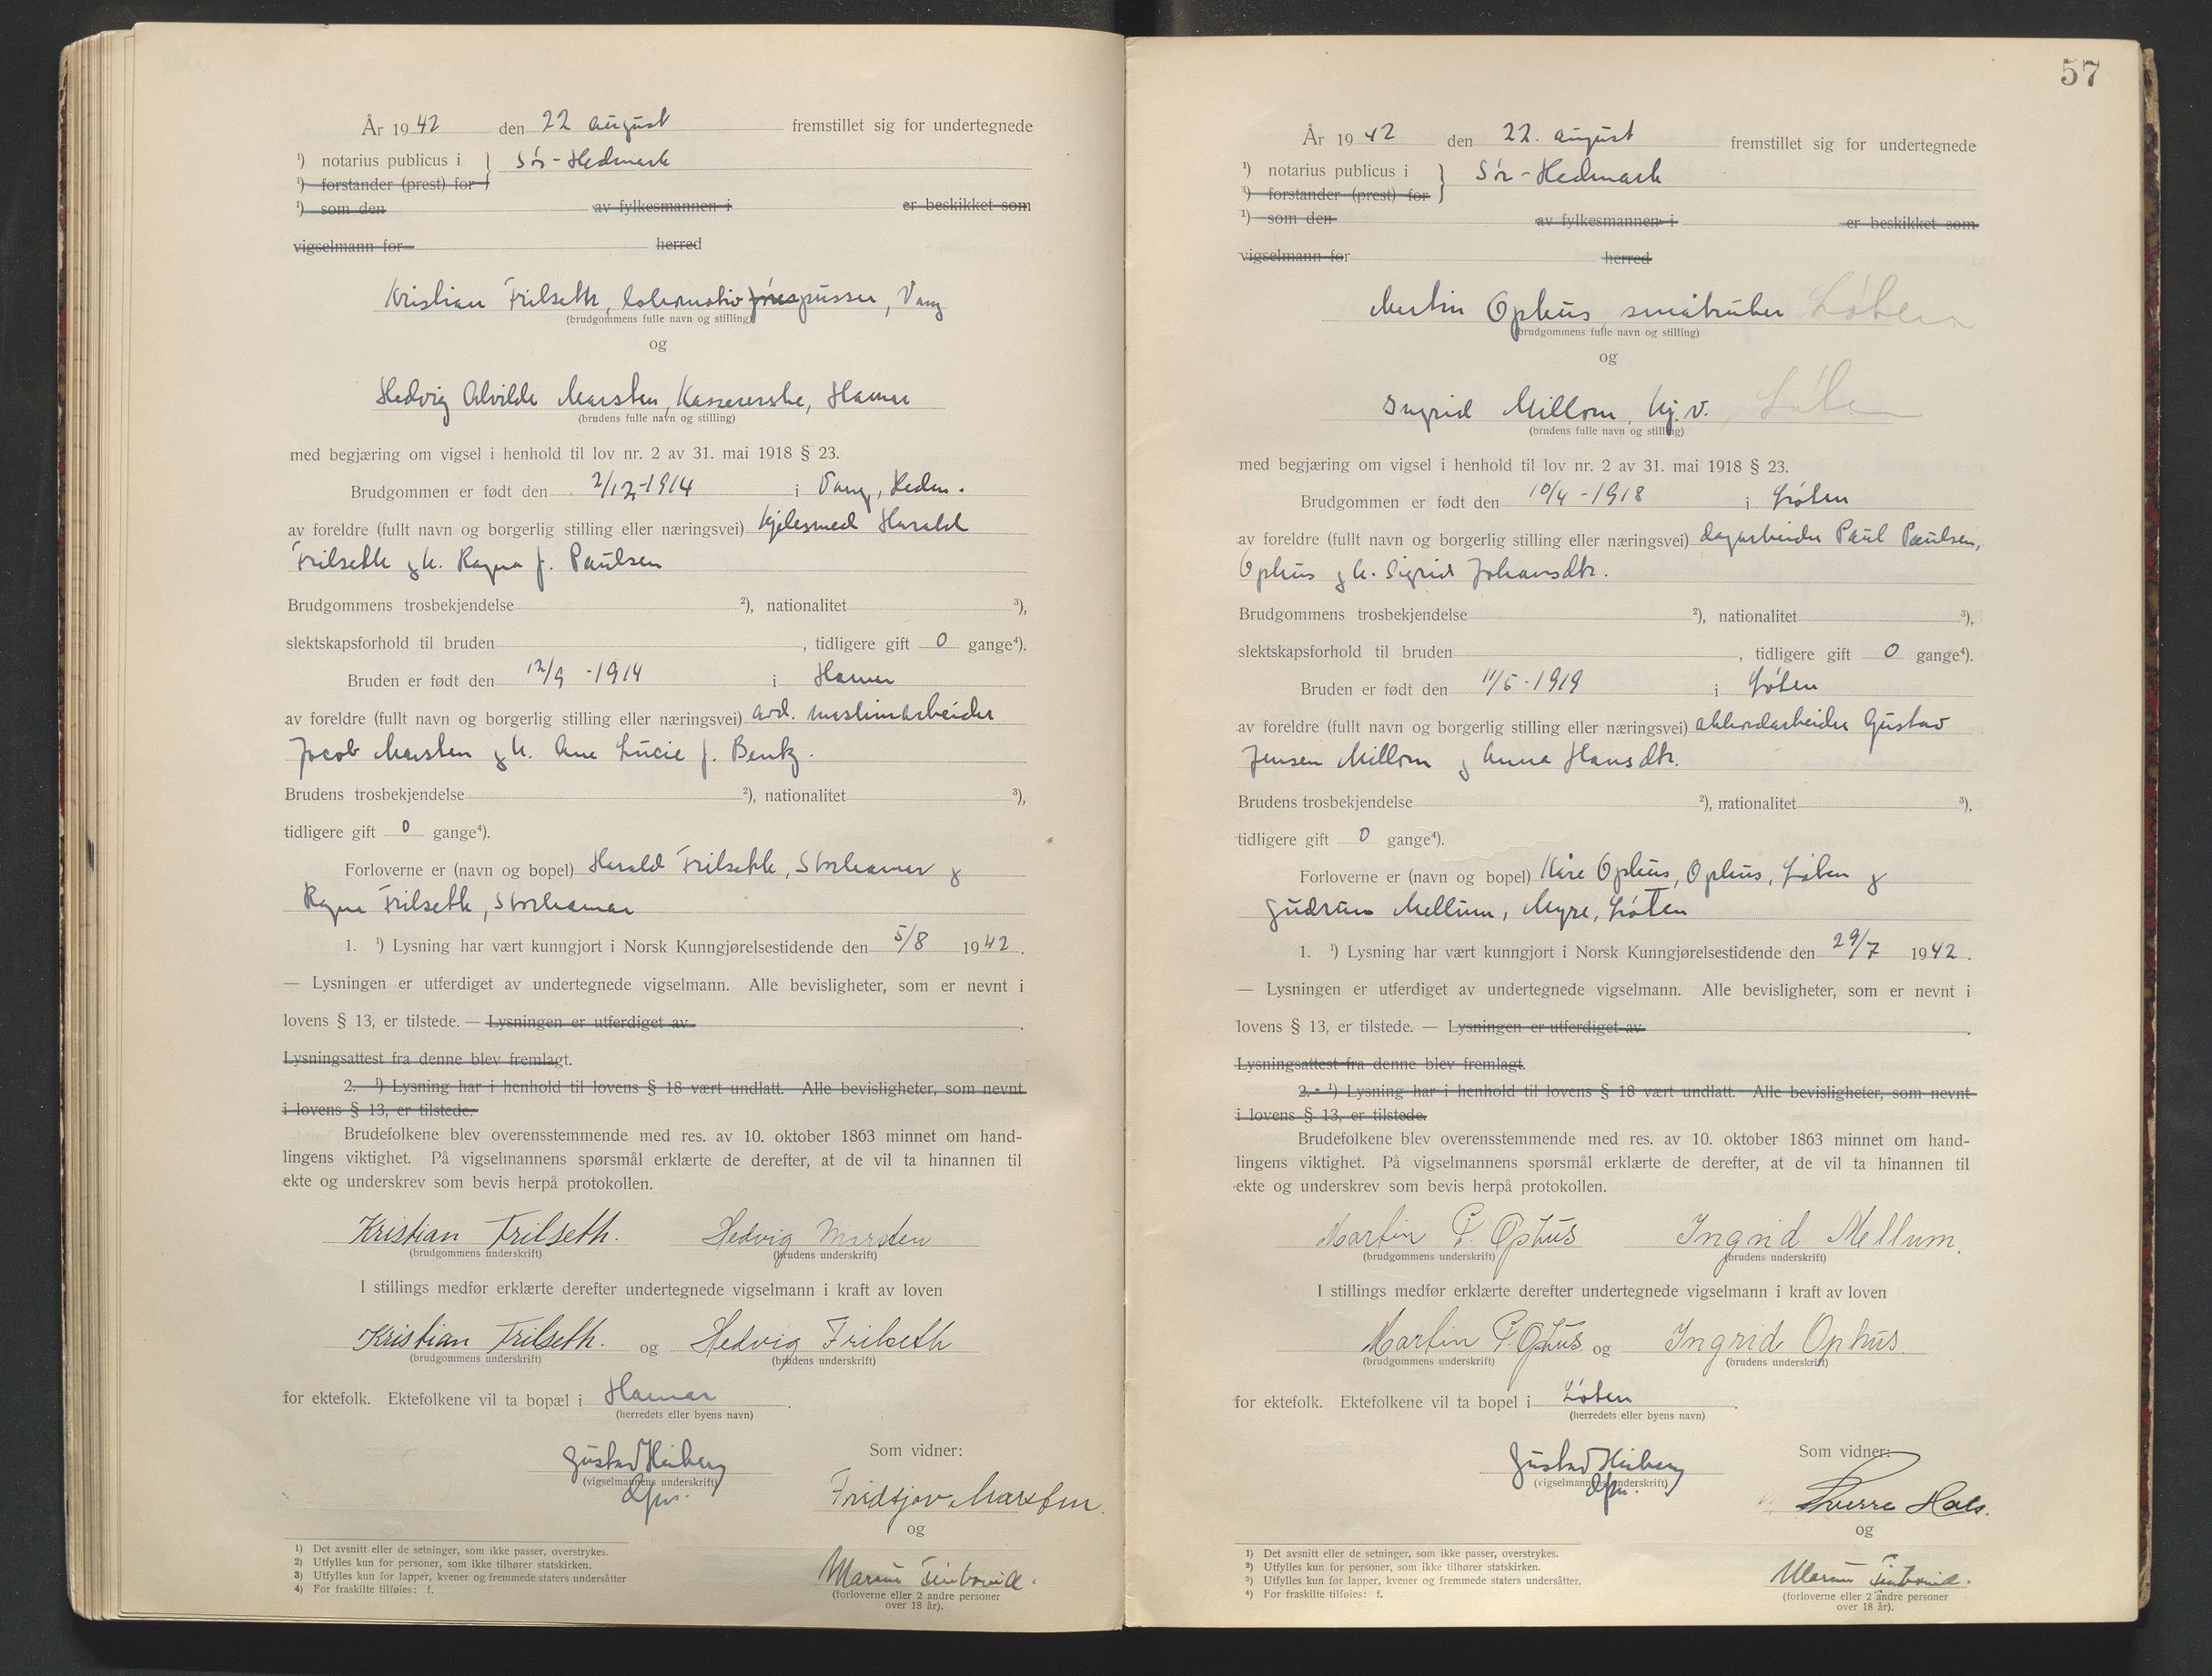 År 1942 den 22 august fremstillet sig for undertegnede
¹) notarius publicus i } Sør-Hedmark
¹) forstander (prest) for
¹) som den av fylkesmannen i er beskikket som
vigselmann for herred
Kristian Frilseth, lokomotiv pusser, Vang
(brudgommens fulle navn og stilling)
og
Hedvig Alvilde Marsten, Kassererske, Hamar
(brudens fulle navn og stilling)
med begjæring om vigsel i henhold til lov nr. 2 av 31. mai 1918 § 23.
Brudgommen er født den 2/12-1914 i Vang, Hedm.
av foreldre (fullt navn og borgerlig stilling eller næringsvei) Kjelesmed Harald
Frilseth og h. Ragna f. Paulsen
Brudgommens trosbekjendelse ²), nationalitet ³),
slektskapsforhold til bruden , tidligere gift 0 gange⁴).
Bruden er født den 12/9 -1914 i Hamar
av foreldre (fullt navn og borgerlig stilling eller næringsvei) avd. maskinarbeider
Jacob Marsten og h. Ane Lucie f. Bentz.
Brudens trosbekjendelse ²), nationalitet ³),
tidligere gift 0 gange⁴).
Forloverne er (navn og bopel) Harald Frilseth, Storhamar og
Ragna Frilseth, Storhamar
1. ¹) Lysning har vært kunngjort i Norsk Kunngjørelsestidende den 5/8 1942.
— Lysningen er utferdiget av undertegnede vigselmann. Alle bevisligheter, som er nevnt i
lovens § 13, er tilstede. — Lysningen er utferdiget av .
Lysningsattest fra denne blev fremlagt.
2. ¹) Lysning har i henhold til lovens § 18 vært undlatt. Alle bevisligheter, som nevnt
i lovens § 13, er tilstede.
Brudefolkene blev overensstemmende med res. av 10. oktober 1863 minnet om hand-
lingens viktighet. På vigselmannens spørsmål erklærte de derefter, at de vil ta hinannen til
ekte og underskrev som bevis herpå protokollen.
Kristian Frilseth. Hedvig Marsten
(brudgommens underskrift) (brudens underskrift)
I stillings medfør erklærte derefter undertegnede vigselmann i kraft av loven
Kristian Frilseth. og Hedvig Frilseth
(brudgommens underskrift) (brudens underskrift)
for ektefolk. Ektefolkene vil ta bopæl i Hamar .
(herredets eller byens navn)
Gustav Heiberg
(vigselmannens underskrift)
Som vidner:
Fridtjov Marsten.
og
Marius
(forloverne eller 2 andre personer
over 18 år).
1) Det avsnitt eller de setninger, som ikke passer, overstrykes.
2) Utfylles kun for personer, som ikke tilhører statskirken.
3) Utfylles kun for lapper, kvener og fremmede staters undersåtter
4) For fraskilte tilføies: f.
57
År 1942 den 22. august fremstillet sig for undertegnede
¹) notarius publicus i } Sør-Hedmark
¹) forstander (prest) for
¹) som den av fylkesmannen i er beskikket som
vigselmann for herred
Martin Ophus småbruker Løten
(brudgommens fulle navn og stilling)
og
Ingrid Millom, hj.v., Løten
(brudens fulle navn og stilling)
med begjæring om vigsel i henhold til lov nr. 2 av 31. mai 1918 § 23.
Brudgommen er født den 10/4 -1918 i Løten
av foreldre (fullt navn og borgerlig stilling eller næringsvei) dagarbeider Paul Paulsen,
Ophus og h. Sigrid Johansdtr.
Brudgommens trosbekjendelse ²), nationalitet ³),
slektskapsforhold til bruden , tidligere gift 0 gange⁴).
Bruden er født den 11/5-1919 i Løten
av foreldre (fullt navn og borgerlig stilling eller næringsvei) akkordarbeider Gustav
Jensen Millom og Anna Hansdtr.
Brudens trosbekjendelse ²), nationalitet ³),
tidligere gift 0 gange⁴).
Forloverne er (navn og bopel) Kåre Ophus, Ophus, Løten og
Gudrun Mellum, Myre, Løten
1. ¹) Lysning har vært kunngjort i Norsk Kunngjørelsestidende den 29/7 1942.
— Lysningen er utferdiget av undertegnede vigselmann. Alle bevisligheter, som er nevnt i
lovens § 13, er tilstede. — Lysningen er utferdiget av .
Lysningsattest fra denne blev fremlagt.
2. ¹) Lysning har i henhold til lovens § 18 vært undlatt. Alle bevisligheter, som nevnt
i lovens § 13, er tilstede.
Brudefolkene blev overensstemmende med res. av 10. oktober 1863 minnet om hand-
lingens viktighet. På vigselmannens spørsmål erklærte de derefter, at de vil ta hinannen til
ekte og underskrev som bevis herpå protokollen.
Martin P. Ophus Ingrid Mellum.
(brudgommens underskrift) (brudens underskrift)
I stillings medfør erklærte derefter undertegnede vigselmann i kraft av loven
Martin P. Ophus og Ingrid Ophus.
(brudgommens underskrift) (brudens underskrift)
for ektefolk. Ektefolkene vil ta bopel i Løten .
(herredets eller byens navn)
Gustav Heiberg
(vigselmannens underskrift)
Som vidner:
Sverre Hals.
og
Marius
(forloverne eller 2 andre personer
over 18 år).
1) Det avsnitt eller de setninger, som ikke passer, overstrykes.
2) Utfylles kun for personer, som ikke tilhører statskirken.
3) Utfylles kun for lapper, kvener og fremmede staters undersåtter.
4) For fraskilte tilføies: f.